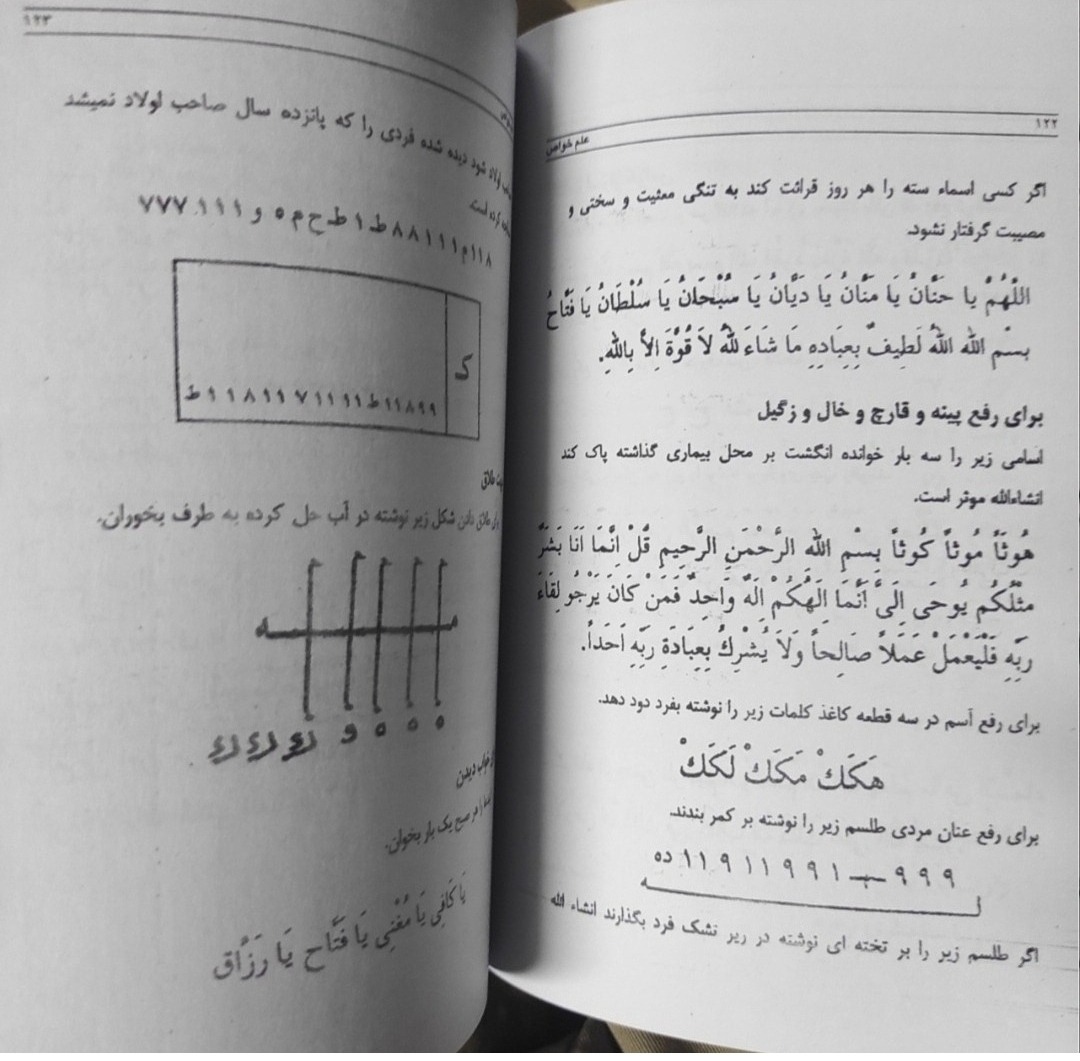 ۱۲۲
علم خواص
اگر کسی اسماء سته را هر روز قرائت کند به تنگی معثیت و سختی و
مصیبت گرفتار نشود.
اللّهُمَّ یا حَنّانُ یَا مَنّانُ یَا دَیّانُ یَا سُبْحَانُ یَا سُلْطَانُ یَا فَتّاحُ
بِسْمِ اللهِ اللهُ لَطِیفٌ بِعِبَادِهِ مَا شَاءَ للهُ لاَ قُوَّةَ اِلاَّ بِاللهِ.
برای رفع پینه و قارچ و خال و زگیل
اسامی زیر را سه بار خوانده انگشت بر محل بیماری گذاشته پاک کند
انشاءالله موثر است.
هُوثَاً مُوثاً کُوثاً بِسْمِ اللهِ الرَّحْمَنِ الرَّحِیمِ قُلْ اِنَّمَا اَنَا بَشَرٌ
مثْلُکُم یُوحَی اِلَیَّ اَنَّمَا اِلَهُکُمْ اِلَهٌ وَاحِدٌ فَمَنْ کَانَ یَرْجُو لِقَاءَ
رَبِّهِ فَلْیَعْمَلْ عَمَلاً صَالِحاً وَلاَ یُشْرِكُ بِعِبَادَةِ رَبِّهِ اَحَداً.
برای رفع آسم در سه قطعه کاغذ کلمات زیر را نوشته بفرد دود دهد.
هَکَكْ مَکَكْ لَکَكْ
برای رفع عنان مردی طلسم زیر را نوشته بر کمر بندند.
اگر طلسم زیر را بر تخته ای نوشته در زیر تشک فرد بگذارند انشاء الله
۱۲۳
اولاد شود دیده شده فردی را که پانزده سال صاحب اولاد نمیشد
کرده است.
۱۱۸م۱۱۱۸۸ط۱ط ح م ۵ و ۱۱۱ ۷۷۷
ک
۹۹۸۱۱ط۱۱۱۱۷۱۱۸۱۱ط
طلاق
طلاق دادن شکل زیر نوشته در آب حل کرده به طرف بخوران.
خواب دیدن
صبح یک بار بخوان.
یَا کَافِی یَا مُغْنِی یَا فَتَّاح یَا رَزَّاق